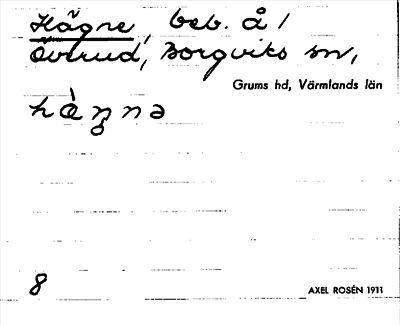 Hägne, beb. å 1
Överud, Borgviks sn,
Grums hd, Värmlands län
hàn̥nə
8
AXEL ROSÉN 1911